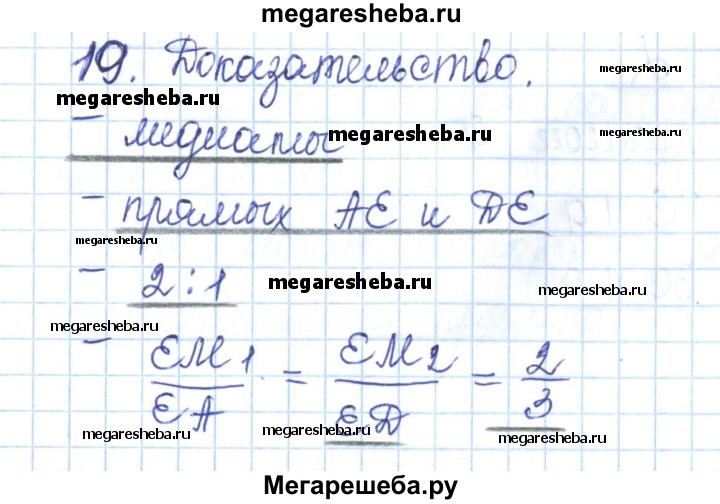 megaresheba.ru
19. Доказательство.
megaresheba.ru
– медианы megaresheba.ru megaresheba.ru
– прямых AE и DE
megaresheba.ru megaresheba.ru
– 2 : 1 megaresheba.ru
megaresheba.ru megaresheba.ru
– EM1/EA = EM2/ED = 2/3
megaresheba.ru megaresheba.ru megaresheba.ru
Мегарешеба.ру